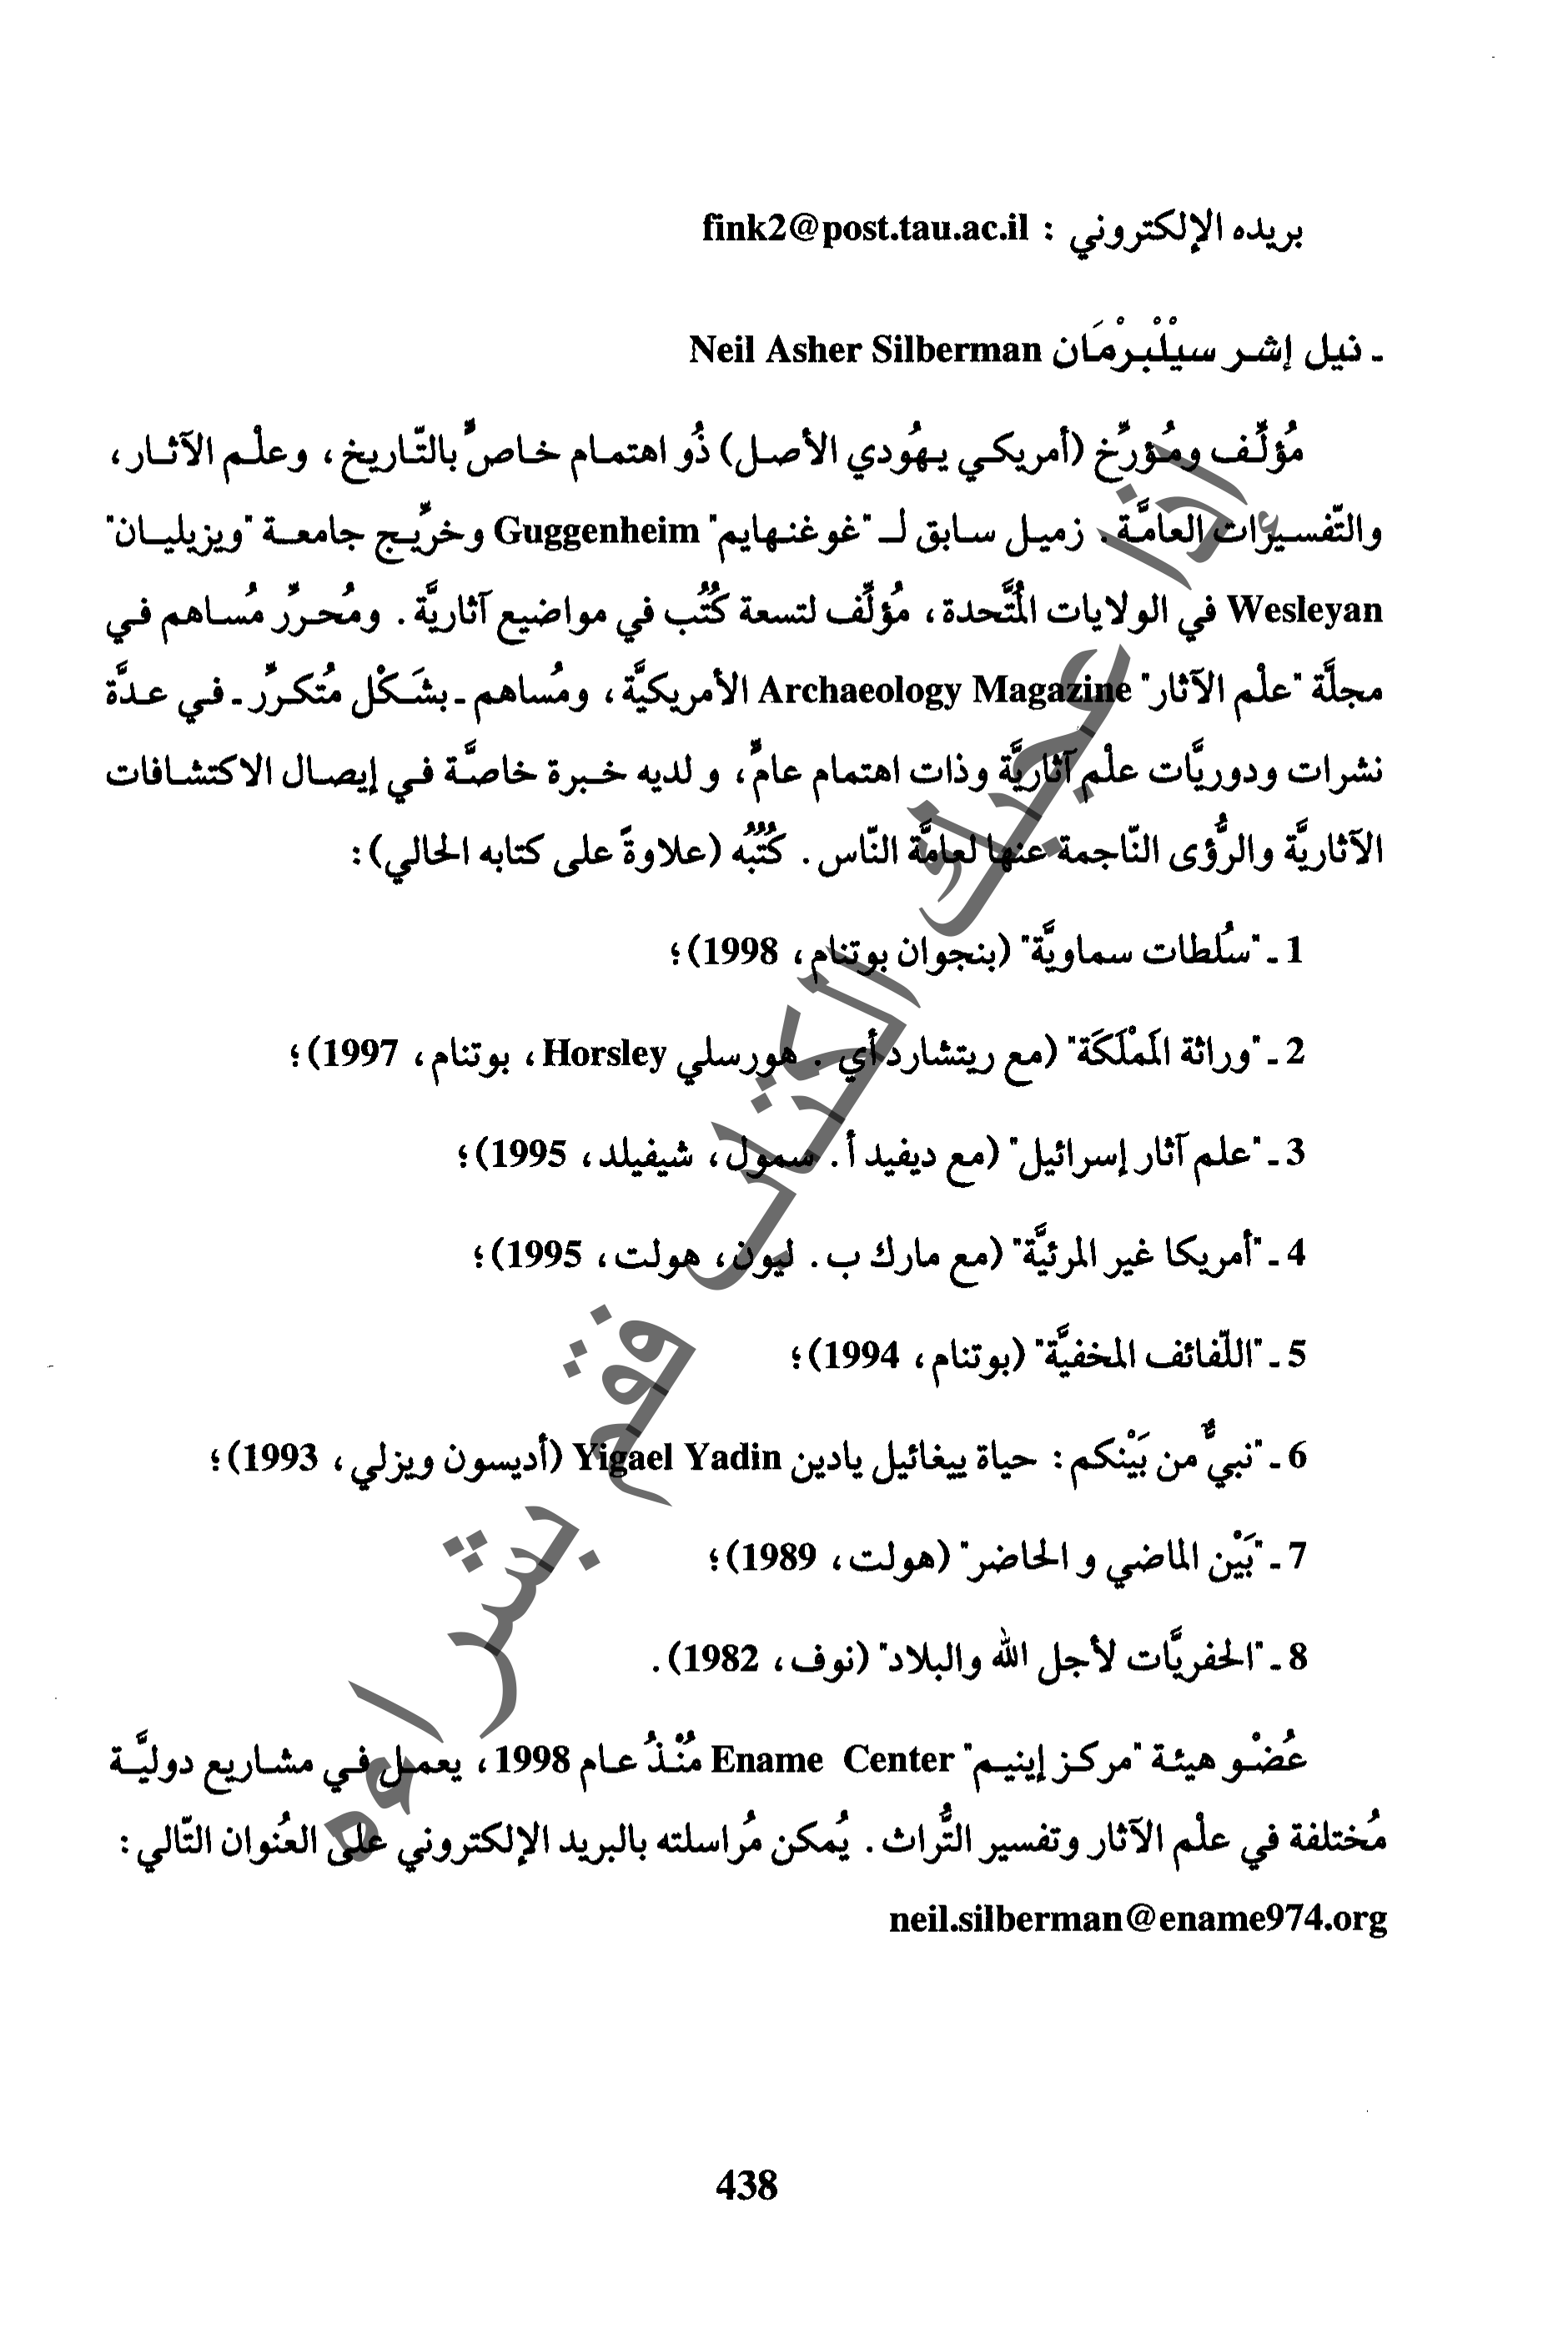 بريده الإلكتروني : fink2@post.tau.ac.il
ـ نيل إشر سيْلْبرْمَان Neil Asher Silberman
مُؤلِّف ومُؤرِّخ (أمريكي يهُودي الأصل) ذُو اهتمام خاصٍّ بالتّاريخ، وعلْم الآثار،
والتّفسيرات العامَّة. زميل سابق لـ "غوغنهايم" Guggenheim وخرِّيج جامعة "ويزيليان"
Wesleyan في الولايات المُتَّحدة، مُؤلِّف لتسعة كُتُب في مواضيع آثاريَّة. ومُحرِّر مُساهم في
مجلَّة "علْم الآثار" Archaeology Magazine الأمريكيَّة، ومُساهم ـ بشَكْل مُتكرِّر ـ في عدَّة
نشرات ودوريَّات علْم آثاريَّة وذات اهتمام عامٍّ، و لديه خبرة خاصَّة في إيصال الاكتشافات
الآثاريَّة والرُّؤى النّاجمة عنها لعامَّة النّاس. كُتُبُه (علاوةً على كتابه الحالي):
1 ـ "سُلطات سماويَّة" (بنجوان بوتنام، 1998)؛
2 ـ "وراثة المَمْلَكَة" (مع ريتشارد أي . هورسلي Horsley، بوتنام، 1997)؛
3 ـ "علم آثار إسرائيل" (مع ديفيد أ. سمول، شيفيلد، 1995)؛
4 ـ "أمريكا غير المرئيَّة" (مع مارك ب. ليون، هولت، 1995)؛
5 ـ "اللّفائف المخفيَّة" (بوتنام، 1994)؛
6 ـ "نبيٌّ من بَيْنكم: حياة ييغائيل يادين Yigael Yadin (أديسون ويزلي، 1993)؛
7 ـ "بَيْن الماضي و الحاضر" (هولت، 1989)؛
8 ـ "الحفريَّات لأجل الله والبلاد" (نوف، 1982).
عُضْو هيئة "مركز إينيم" Ename Center مُنْذُ عام 1998، يعمل في مشاريع دوليَّة
مُختلفة في علْم الآثار وتفسير التُّراث. يُمكن مُراسلته بالبريد الإلكتروني على العُنوان التّالي:
neil.silberman@ename974.org
438
إذا أعجبك الكتاب فقم بشراءه